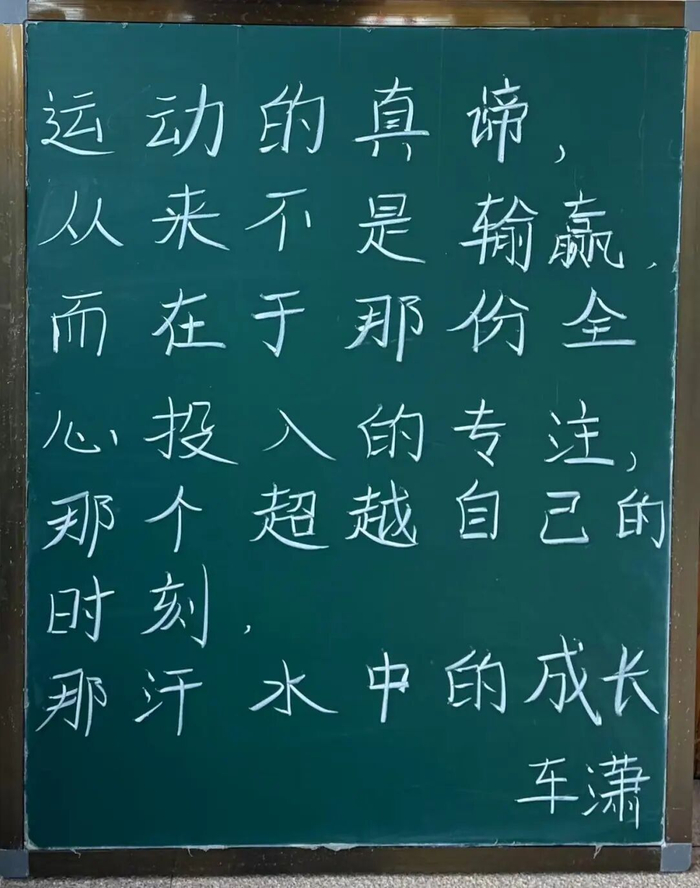 运动的真谛，
从来不是输赢，
而在于那份全
心投入的专注，
那个超越自己的
时刻，
那汗水中的成长
车潇